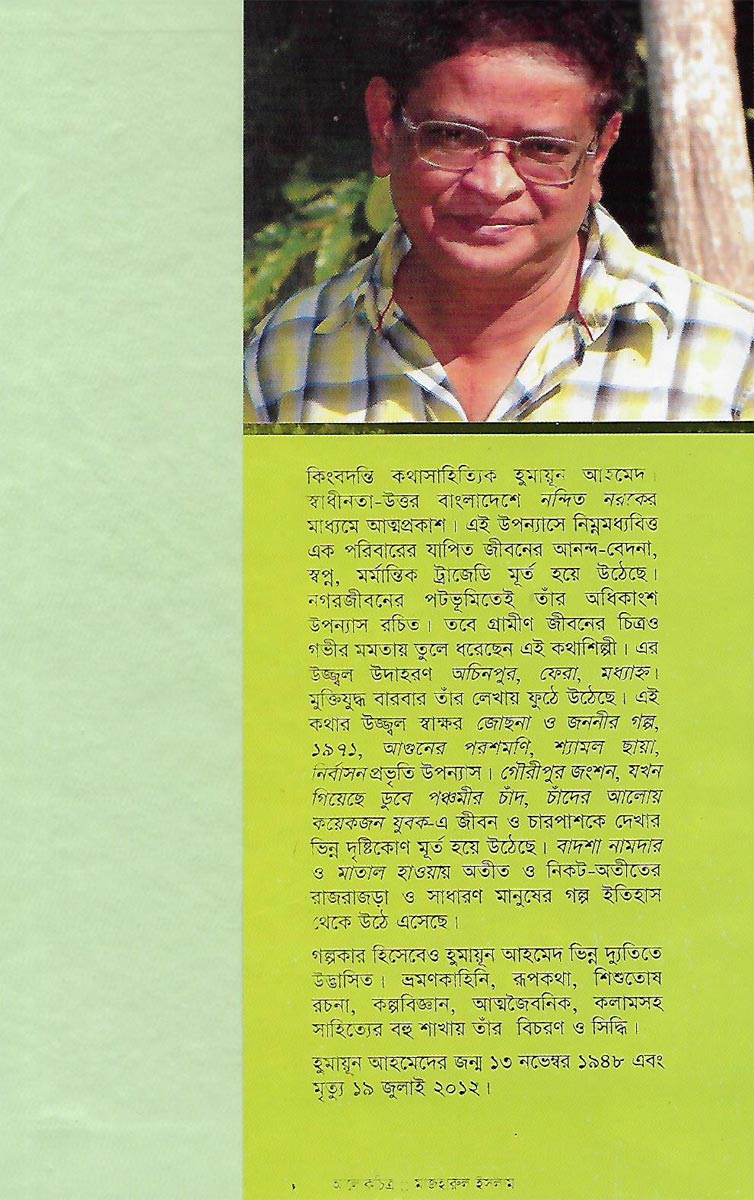 কিংবদন্তি কথাসাহিত্যিক হুমায়ূন আহমেদ।
স্বাধীনতা-উত্তর বাংলাদেশে নন্দিত নরকের
মাধ্যমে আত্মপ্রকাশ। এই উপন্যাসে নিম্নমধ্যবিত্ত
এক পরিবারের যাপিত জীবনের আনন্দ-বেদনা,
স্বপ্ন, মর্মান্তিক ট্রাজেডি মূর্ত হয়ে উঠেছে।
নগরজীবনের পটভূমিতেই তাঁর অধিকাংশ
উপন্যাস রচিত। তবে গ্রামীণ জীবনের চিত্রও
গভীর মমতায় তুলে ধরেছেন এই কথাশিল্পী। এর
উজ্জ্বল উদাহরণ অচিনপুর, ফেরা, মধ্যাহ্ন।
মুক্তিযুদ্ধ বারবার তাঁর লেখায় ফুঠে উঠেছে। এই
কথার উজ্জ্বল স্বাক্ষর জোছনা ও জননীর গল্প,
১৯৭১, আগুনের পরশমণি, শ্যামল ছায়া,
নির্বাসন প্রভৃতি উপন্যাস। গৌরীপুর জংশন, যখন
গিয়েছে ডুবে পঞ্চমীর চাঁদ, চাঁদের আলোয়
কয়েকজন যুবক-এ জীবন ও চারপাশকে দেখার
ভিন্ন দৃষ্টিকোণ মূর্ত হয়ে উঠেছে। বাদশা নামদার
ও মাতাল হাওয়ায় অতীত ও নিকট-অতীতের
রাজরাজড়া ও সাধারণ মানুষের গল্প ইতিহাস
থেকে উঠে এসেছে।
গল্পকার হিসেবেও হুমায়ূন আহমেদ ভিন্ন দ্যুতিতে
উদ্ভাসিত। ভ্রমণকাহিনি, রূপকথা, শিশুতোষ
রচনা, কল্পবিজ্ঞান, আত্মজৈবনিক, কলামসহ
সাহিত্যের বহু শাখায় তাঁর বিচরণ ও সিদ্ধি।
হুমায়ূন আহমেদের জন্ম ১৩ নভেম্বর ১৯৪৮ এবং
মৃত্যু ১৯ জুলাই ২০১২।
মাজহারুল ইসলাম